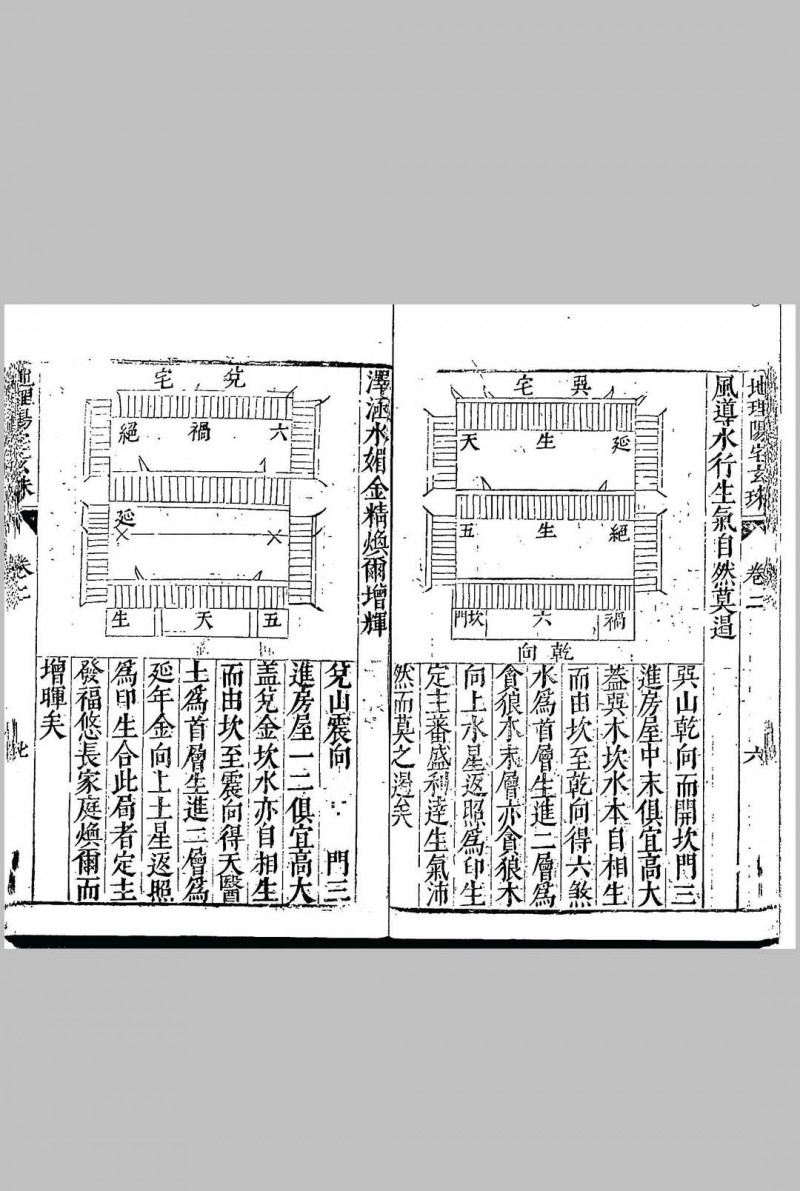 地理陽宅玄珠
卷二
六
風導水行生氣自然莫遏
宅巽
天 生 延
五 生 絕
門坎 六 禍
向乾
巽山乾向而開坎門三
進房屋中末俱宜高大
蓋巽木坎水本自相生
而由坎至乾向得六煞
水為首層生進二層為
貪狼木末層亦貪狼木
向上水星返照為印生
定主蕃盛利達生氣沛
然而莫之遏矣
澤涵水媚金精煥爾增輝
宅兌
絕 禍 六
延
生 天 五
兌山震向 門三
進房屋一二俱宜高大
蓋兌金坎水亦自相生
而由坎至震向得天醫
土為首層生進二層為
延年金向上土星返照
為印生合此局者定主
發福悠長家庭煥爾而
增暉矣
地理陽宅玄珠
卷二